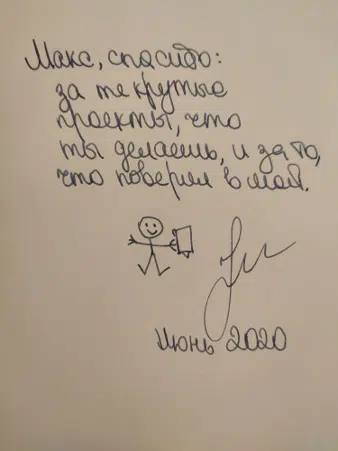 Макс, спасибо:
за те крутые
проекты, что
ты делаешь, и за то,
что поверил в мой.
Июнь 2020